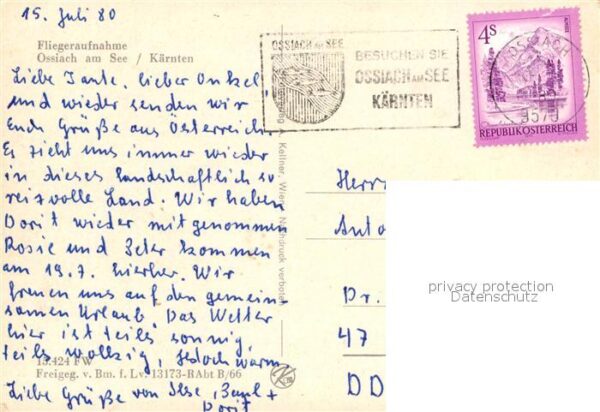 15. Juli 80
Fliegeraufnahme
Ossiach am See / Kärnten
Liebe Tante, lieber Onkel
und wieder senden wir
Euch Grüße aus Österreich.
Es zieht uns immer wieder
in dieses landschaftlich so
reizvolle Land. Wir haben
Dorit wieder mitgenommen
Rosie und Peter kommen
am 19.7. hierher. Wir
freuen uns auf den gemein-
samen Urlaub. Das Wetter
hier ist teils sonnig,
teils wolkig, jedoch warm.
13.424 FW
Freigeg. v. Bm. f. Lv. 13173-RAbt B/66
Liebe Grüße von Ilse, Paul +
Dorit
Kellner, Wien, Nachdruck verboten
OSSIACH AM SEE
BESUCHEN SIE
OSSIACH AM SEE
KÄRNTEN
4S
REPUBLIK ÖSTERREICH
OSSIACH
9570
Herrn
Dr.
47
DD
privacy protection
Datenschutz